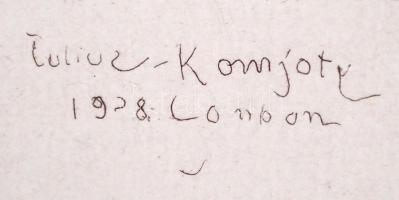 Julius Komjoty
1928. London